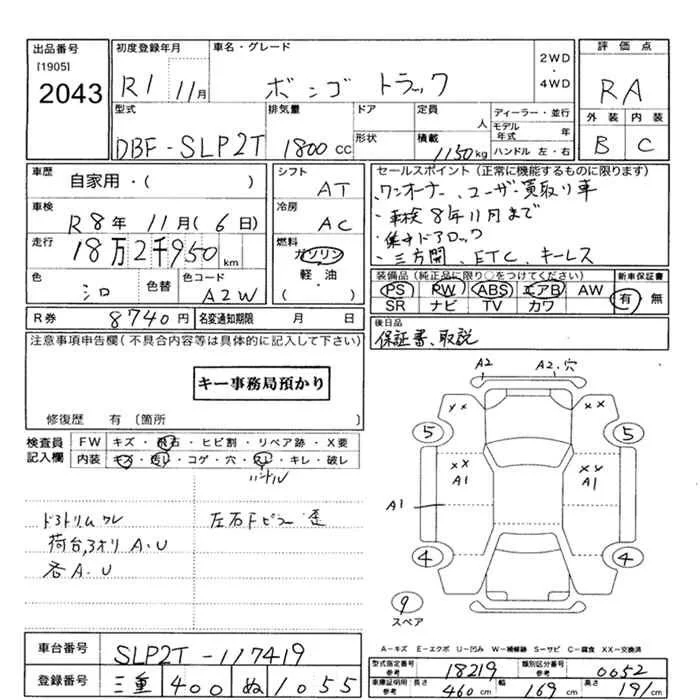 出品番号 初度登録年月 車名・グレード 2WD・4WD 評価点
[1905]
2043 R1 11月 ボンゴ トラック RA
型式 排気量 ドア 定員 人 ディーラー・並行 外装 内装
DBF-SLP2T 1800cc 形状 積載 1150kg モデル年式 年 B C
ハンドル 左・右
車歴 自家用・( ) シフト AT セールスポイント(正常に機能するものに限ります)
・ワンオーナー、ユーザー買取り車
車検 R8年 11月(6日) 冷房 AC ・車検 8年11月まで
走行 18万2千950km 燃料 ガソリン ・集中ドアロック
軽油 ・三方開、ETC、キーレス
( )
色 シロ 色替 色コード A2W 装備品(純正品に限り○をつけてください) 新車保証書
PS RW ABS エアB AW 有・無
SR ナビ TV カワ
R券 8740円 名変通知期限 月 日 後日品
保証書、取説
注意事項申告欄(不具合内容等は具体的に記入して下さい)
キー事務局預かり
修復歴 有 〔箇所 〕
検査員記入欄 FW キズ・飛石・ヒビ割・リペア跡・X要
内装 キズ・汚レ・コゲ・穴・スレ・キレ・破レ
ハンドル
ドアトリムワレ 左右Fピラー歪
荷台,3オリ A.U
各A.U
A2 A2.穴
XX XX
5 5
XX XX
A1 A1
A1
4 4
9
スペア
A-キズ E-エクボ U-凹み W-補修跡 S-サビ C-腐食 XX-交換済
車台番号 SLP2T-117419
登録番号 三重 400 ぬ 1055
型式指定番号 参考 18219 類別区分番号 参考 0652
車庫証明用 参考 長さ 460cm 幅 169cm 高さ 191cm